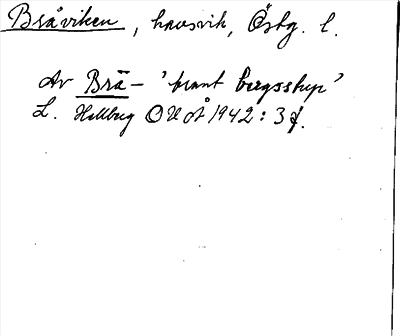 Bråviken, havsvik, Östg. l.
Av Brā- 'brant bergsstup'
L. Hellberg OUÅ 1942: 3 f.